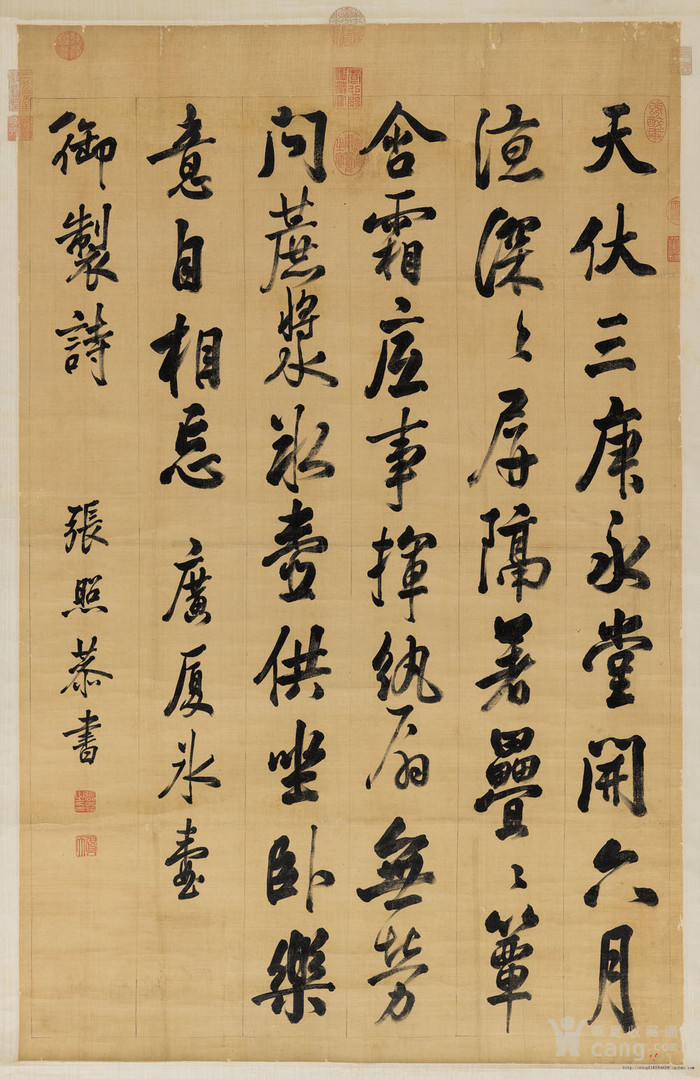 天伏三庚永堂開六月
涼深〻屏隔暑疊〻簟
含霜底事揮紈扇無勞
問蔗漿冰壺供坐臥樂
意自相忘 廣厦冰壺
御製詩 張照恭書
cang.com